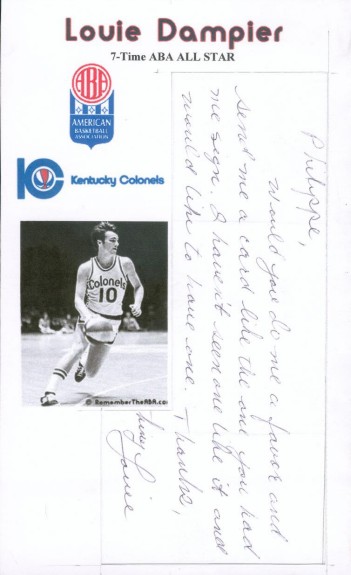 Louie Dampier
7-Time ABA ALL STAR
ABA
AMERICAN
BASKETBALL
ASSOCIATION
Kentucky Colonels
Colonels
10
© RememberTheABA.co
Philippe,
Would you do me a favor and
send me a card like the one you had
me sign. I haven't seen one like it and
would like to have one. Thanks,
Louie